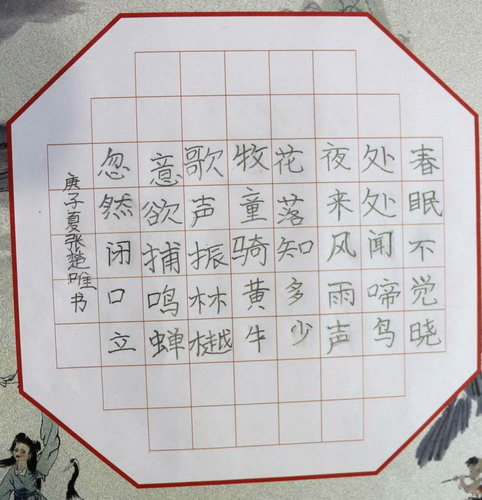 春眠不觉晓
处处闻啼鸟
夜来风雨声
花落知多少
牧童骑黄牛
歌声振林樾
意欲捕鸣蝉
忽然闭口立
庚子夏张楚唯书